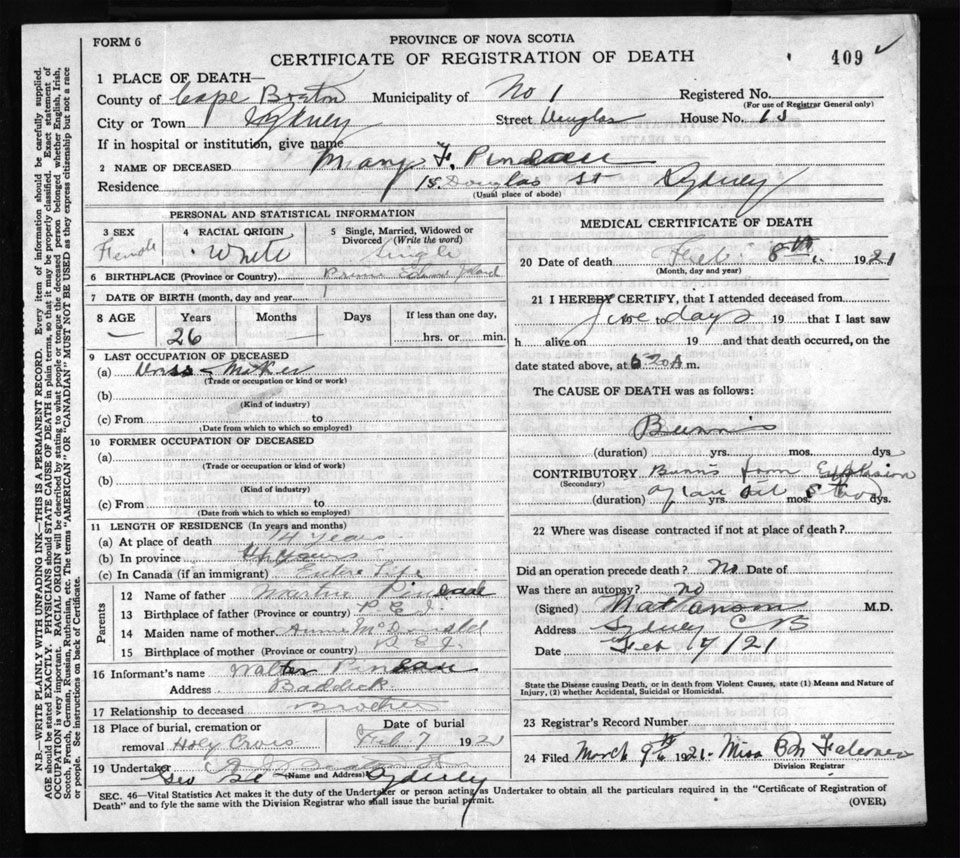 FORM 6
PROVINCE OF NOVA SCOTIA
CERTIFICATE OF REGISTRATION OF DEATH
409
1 PLACE OF DEATH—
County of Cape Breton Municipality of No 1 Registered No.
(For use of Registrar General only)
City or Town Sydney Street Douglas House No. 15
If in hospital or institution, give name
2 NAME OF DECEASED Mary F. Pineau
Residence 15 Douglas St Sydney
(Usual place of abode)
PERSONAL AND STATISTICAL INFORMATION
3 SEX Female
4 RACIAL ORIGIN White
5 Single, Married, Widowed or Divorced (Write the word) Single
6 BIRTHPLACE (Province or Country) Prince Edward Island
7 DATE OF BIRTH (month, day and year)
8 AGE Years 26 Months — Days If less than one day, hrs. or min.
9 LAST OCCUPATION OF DECEASED
(a) Dress Maker
(Trade or occupation or kind or work)
(b)
(Kind of industry)
(c) From to
(Date from which to which so employed)
10 FORMER OCCUPATION OF DECEASED
(a)
(Trade or occupation or kind or work)
(b)
(Kind of industry)
(c) From to
(Date from which to which so employed)
11 LENGTH OF RESIDENCE (In years and months)
(a) At place of death 14 years
(b) In province years
(c) In Canada (if an immigrant) Entire Life
Parents
12 Name of father Martin Pineau
13 Birthplace of father (Province or country) P.E.I.
14 Maiden name of mother Annie McDonald
15 Birthplace of mother (Province or country) P.E.I.
16 Informant's name Walter Pineau
Address Baddeck
17 Relationship to deceased Brother
18 Place of burial, cremation or removal Holy Cross
Date of burial Feb. 7 1921
19 Undertaker
(Name and Address) Sydney
SEC. 46—Vital Statistics Act makes it duty of the Undertaker or person acting as Undertaker to obtain all the particulars required in the "Certificate of Registration of
Death" and to fyle the same with the Division Registrar who shall issue the burial permit.
(OVER)
MEDICAL CERTIFICATE OF DEATH
20 Date of death Feb. 8th 1921
(Month, day and year)
21 I HEREBY CERTIFY, that I attended deceased from
days 19 that I last saw
h alive on 19 and that death occurred, on the
date stated above, at 6 20 A m.
The CAUSE OF DEATH was as follows:
Burns
(duration) yrs. mos. dys
CONTRIBUTORY Burns from Explosion
(Secondary)
(duration) of oil yrs. mos. dys.
22 Where was disease contracted if not at place of death?
Did an operation precede death? No Date of
Was there an autopsy? no
(Signed) Nathanson M.D.
Address Sydney CB
Date Feb 17/21
State the Disease causing Death, or in death from Violent Causes, state (1) Means and Nature of
Injury, (2) whether Accidental, Suicidal or Homicidal.
23 Registrar's Record Number
24 Filed March 9th 1921. Miss
Division Registrar
N.B.—WRITE PLAINLY WITH UNFADING INK—THIS IS A PERMANENT RECORD. Every item of information should be carefully supplied.
AGE should be stated EXACTLY. PHYSICIANS should STATE CAUSE OF DEATH in plain terms, so that it may be properly classified. Exact statement of
OCCUPATION is very important. RACIAL ORIGIN will be described by stating to what people or tongue the deceased person belonged whether English, Irish,
Scotch, French, German, Russian, Ruthenian, etc. The terms "AMERICAN" OR "CANADIAN" MUST NOT BE USED as they express citizenship but not a race
or people. See instructions on back of Certificate.